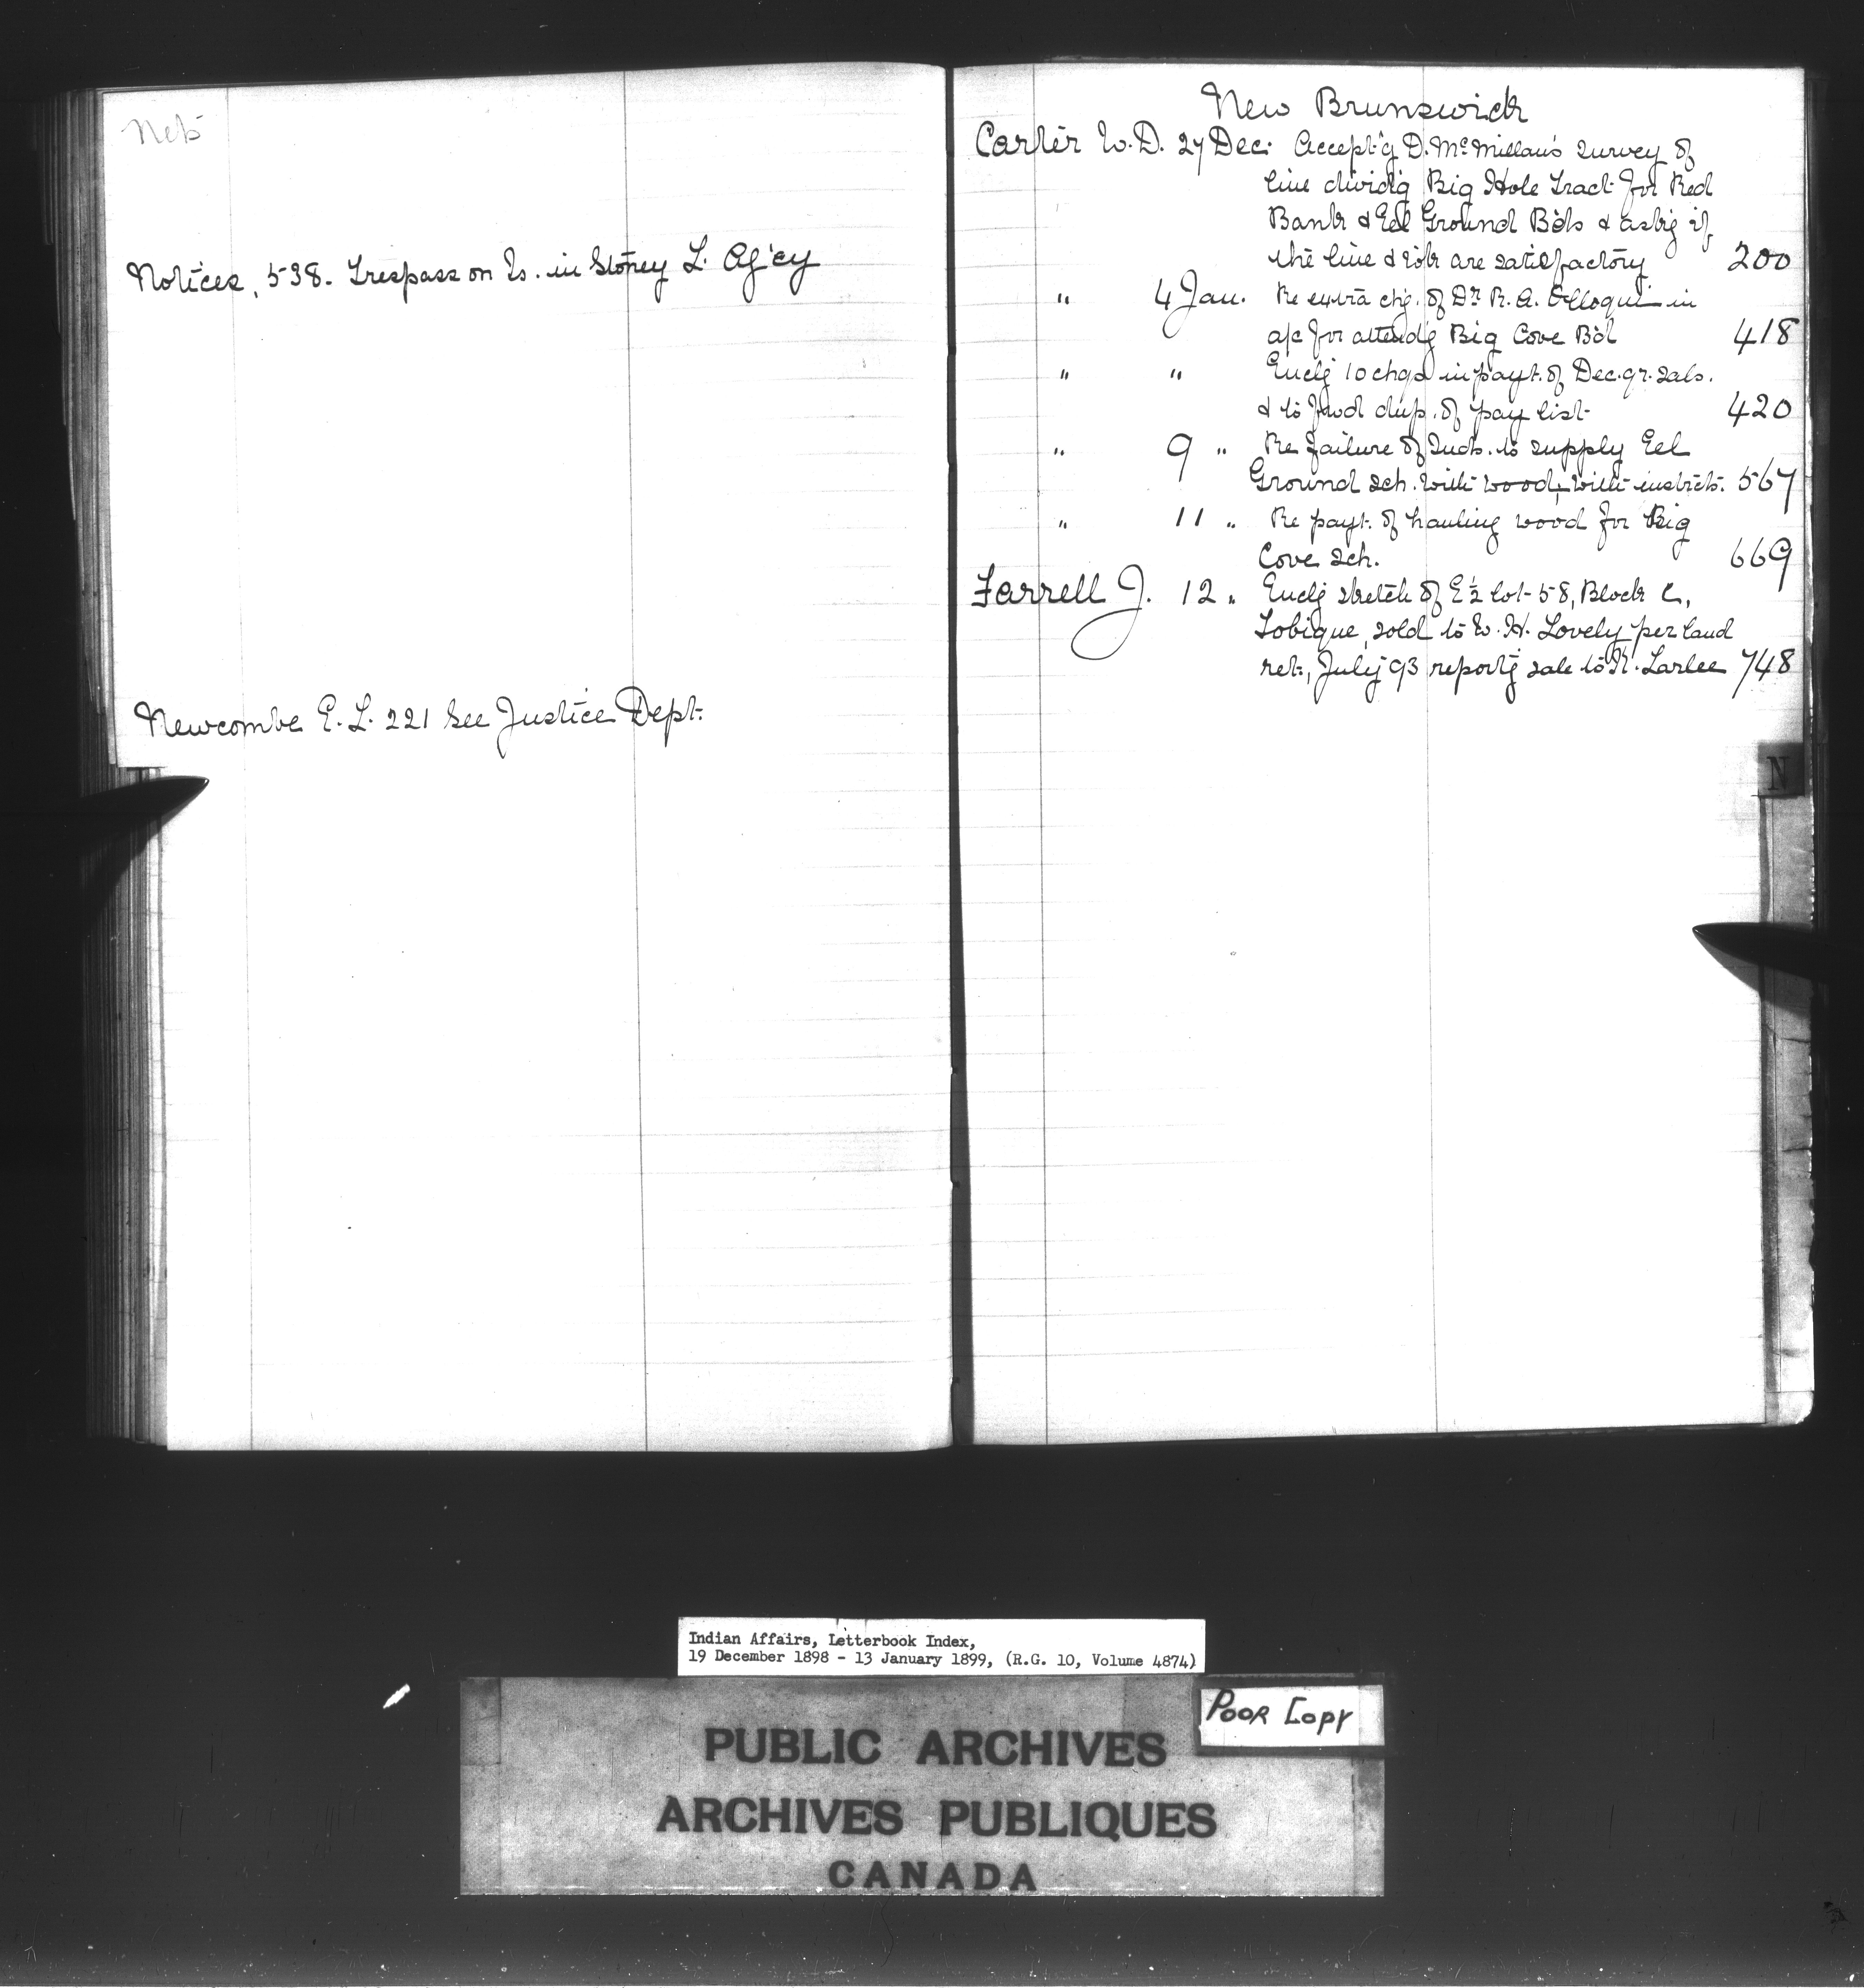 Nets
Notices, 538. Trespass on Is. in Stoney L. Ag'cy
Newcombe E. L. 221 See Justice Dept.
New Brunswick
Carter W. D. 27 Dec. Accept'g D. McMillan's survey of
line divid'g Big Hole Tract for Red
Bank & Eel Ground B'ds & ask'g if
the line & are satisfactory 200
" 4 Jan. Re extra chg. of Dr R. A. Olloqui in
a/c for attend'g Big Cove B'd 418
" " Encl'g 10 chqs in payt. of Dec. qr. sals.
& to fwd dup. of pay list 420
" 9 " Re failure of Inds. to supply Eel
Ground sch. with wood, with instrcts. 567
" 11 " Re payt. of hauling wood for Big
Cove sch. 669
Farrell J. 12 " Encl'g sketch of E ½ lot 58, Block C,
Tobique, sold to W. H. Lovely per land
ret., July 93 report'g sale to Larlee 748
N
Indian Affairs, Letterbook Index,
19 December 1898 - 13 January 1899, (R.G. 10, Volume 4874)
Poor Copy
PUBLIC ARCHIVES
ARCHIVES PUBLIQUES
CANADA